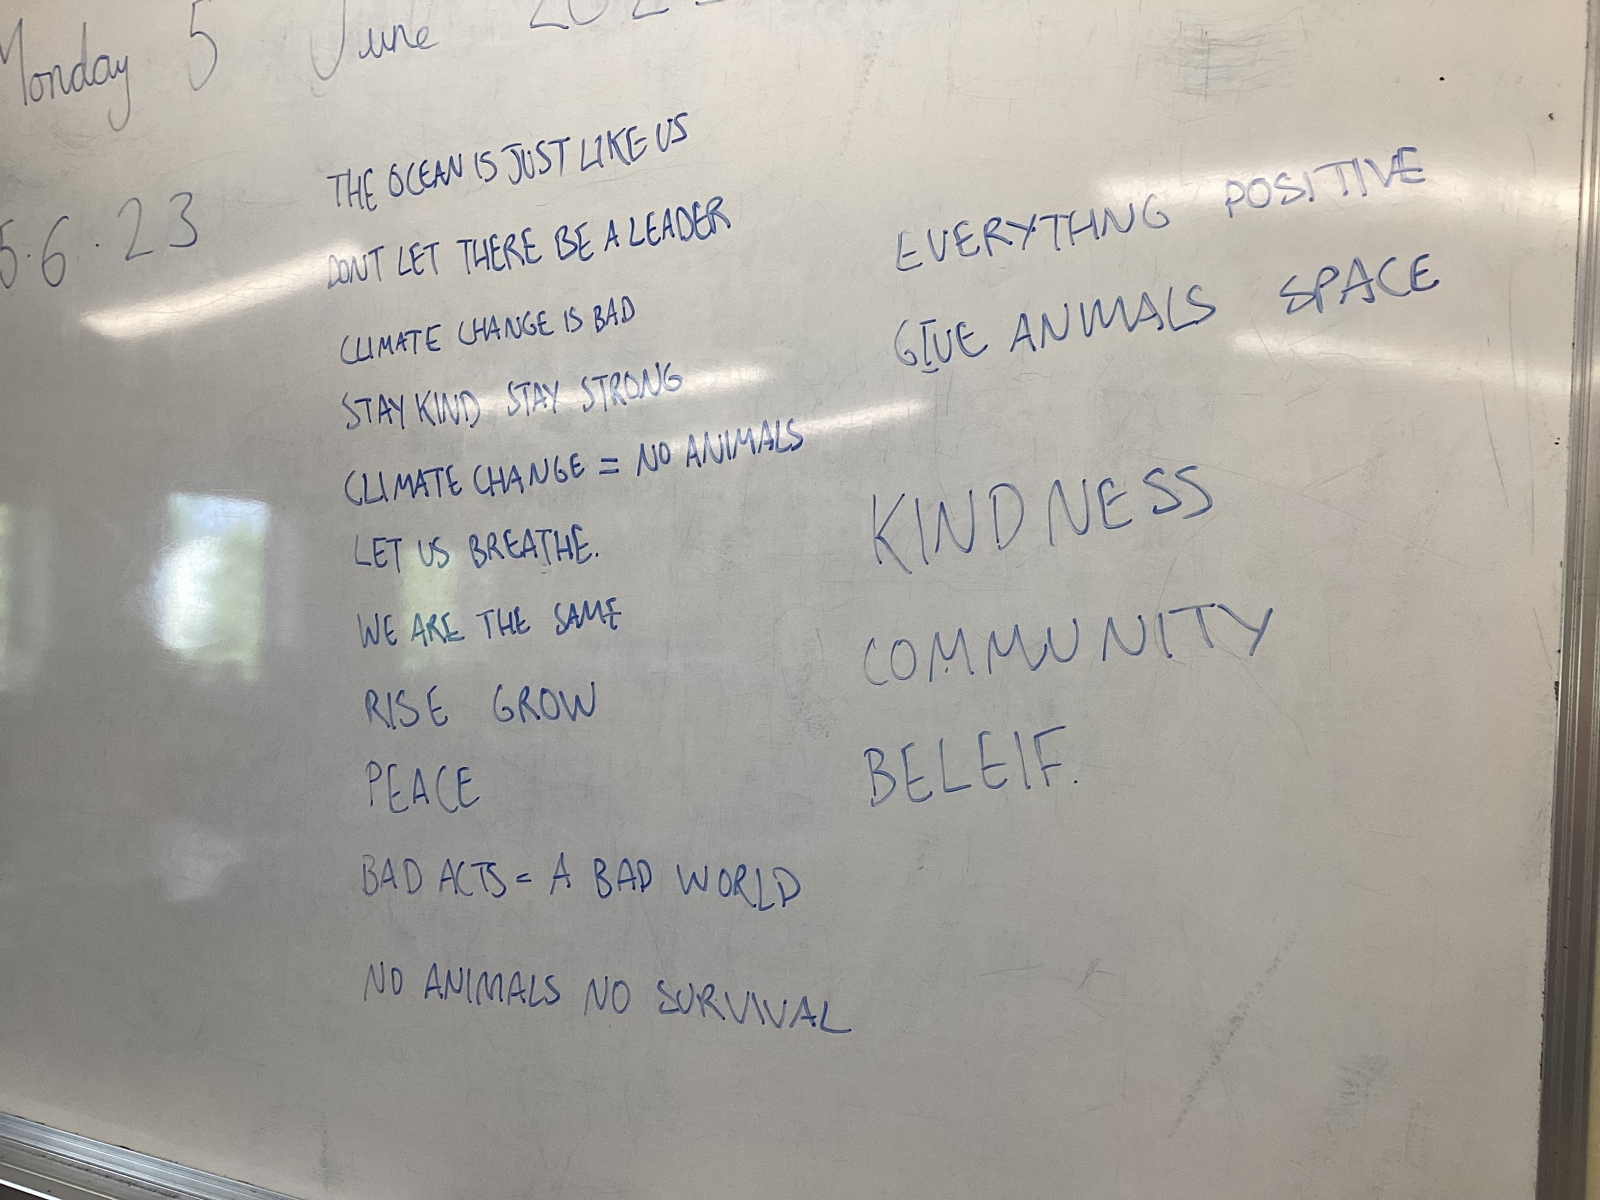 Monday 5 June 2023
5.6.23
THE OCEAN IS JUST LIKE US
DONT LET THERE BE A LEADER
CLIMATE CHANGE IS BAD
STAY KIND STAY STRONG
CLIMATE CHANGE = NO ANIMALS
LET US BREATHE.
WE ARE THE SAME
RISE GROW
PEACE
BAD ACTS = A BAD WORLD
NO ANIMALS NO SURVIVAL
EVERYTHNG POSITIVE
GIVE ANIMALS SPACE
KINDNESS
COMMUNITY
BELEIF.